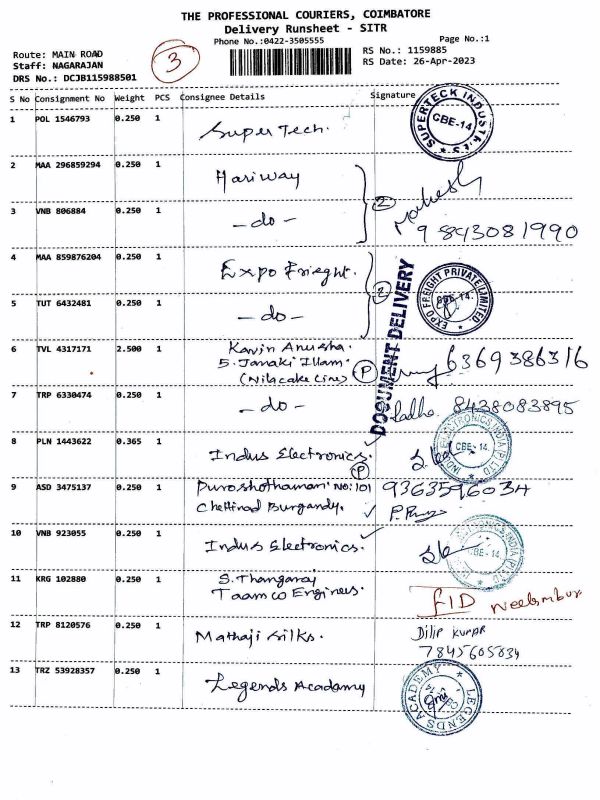 THE PROFESSIONAL COURIERS, COIMBATORE
Delivery Runsheet - SITR
Phone No.:0422-3505555 Page No.:1
Route: MAIN ROAD RS No.: 1159885
Staff: NAGARAJAN 3 RS Date: 26-Apr-2023
DRS No.: DCJB115988501
S No Consignment No Weight PCS Consignee Details Signature
1 POL 1546793 0.250 1 Super Tech. CBE-14
2 MAA 296859294 0.250 1 Hariway 2 Mahesh
3 VNB 806884 0.250 1 -do- 9843081990
4 MAA 859876204 0.250 1 Expo Frieght. EXPO FREIGHT PRIVATE LIMITED
DOCUMENT DELIVERY
5 TUT 6432481 0.250 1 -do- 2
6 TVL 4317171 2.500 1 Kavin Anusha. 6369386316
5. Janaki Illam.
(Nilacake Line) P
7 TRP 6330474 0.250 1 -do- 8438083895
8 PLN 1443622 0.365 1 Indus Electronics. CBE-14
P
9 ASD 3475137 0.250 1 Puroshothaman. No: 101 9363596034
Chettinad Burgandy.
10 VNB 923055 0.250 1 Indus Electronics. CBE-14
11 KRG 102880 0.250 1 S. Thangaraj
Taamco Engineers. FID Neelambur
12 TRP 8120576 0.250 1 Mathaji Silks. Dilip Kumar
7845605034
13 TRZ 53928357 0.250 1 Legends Acadamy LEGENDS ACADEMY